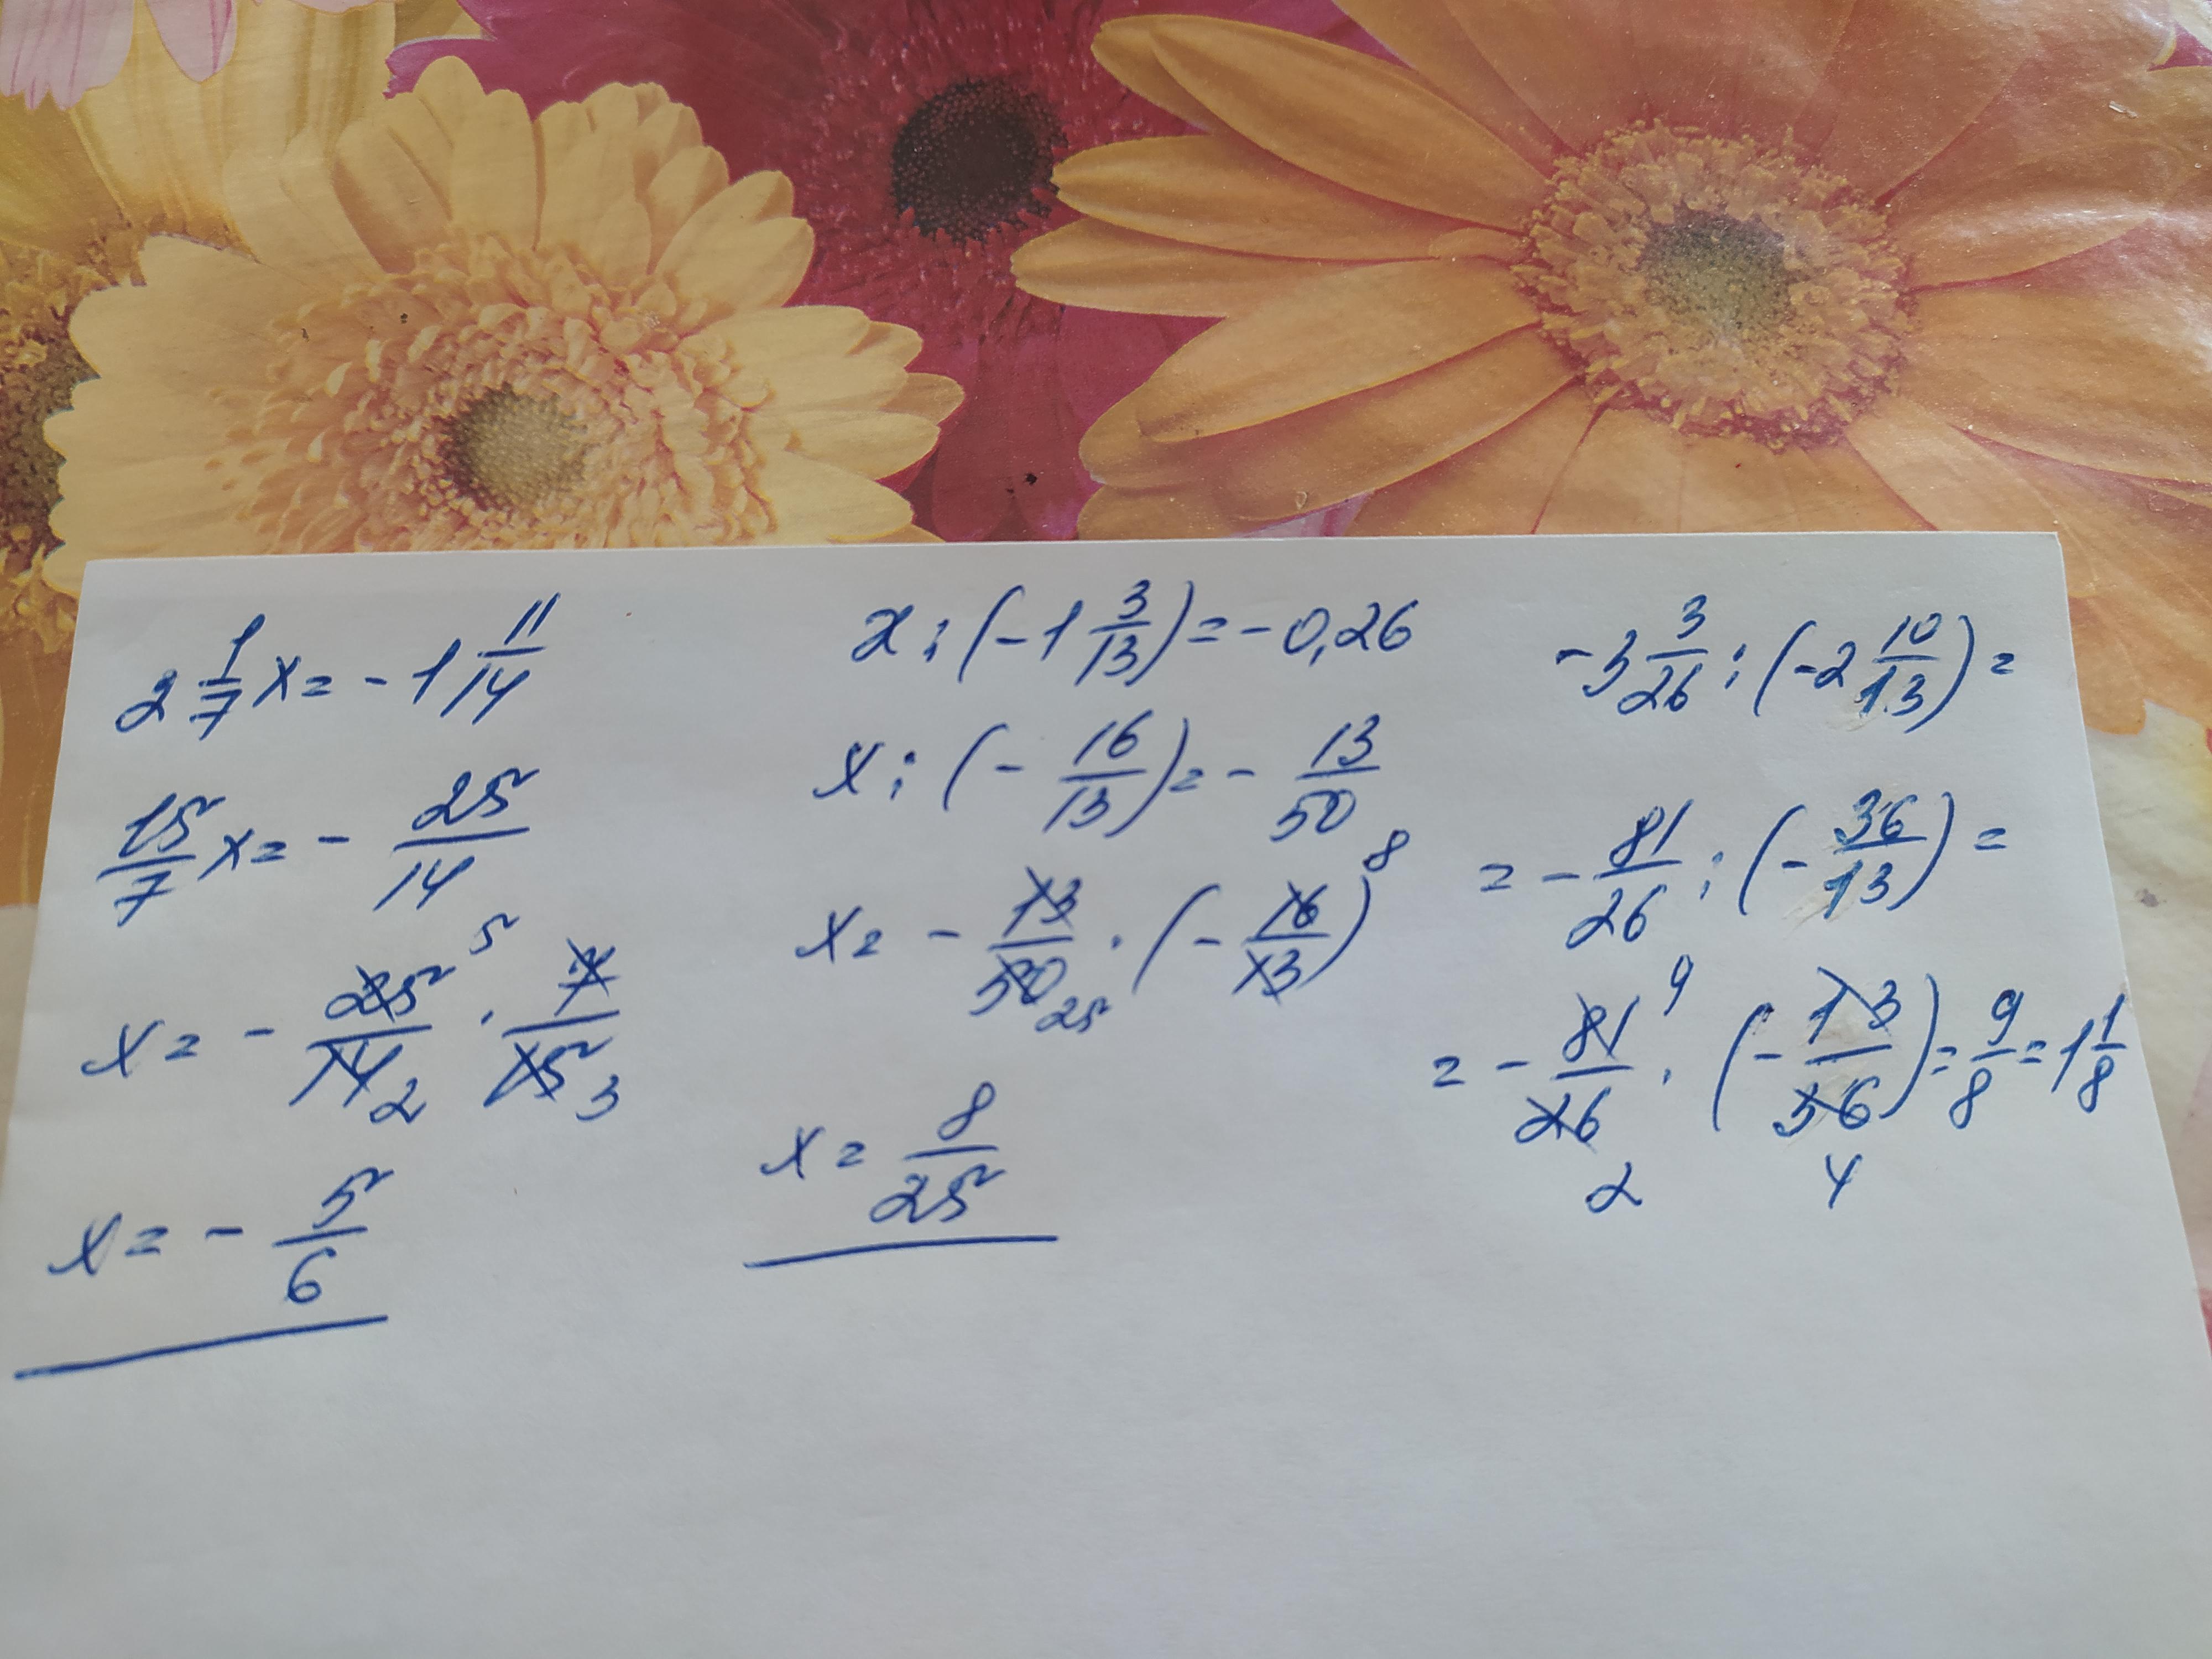 2 1/7 x = - 1 11/14
15/7 x = - 25/14
x = - 25/14 · 7/15 5 2 3
x = - 5/6
x : (- 1 3/13) = - 0,26
x : (- 16/13) = - 13/50
x = - 13/50 · (- 16/13) 8 25
x = 8/25
- 3 3/26 : (- 2 10/13) =
= - 81/26 : (- 36/13) =
= - 81/26 · (- 13/36) = 9/8 = 1 1/8 9 2 4